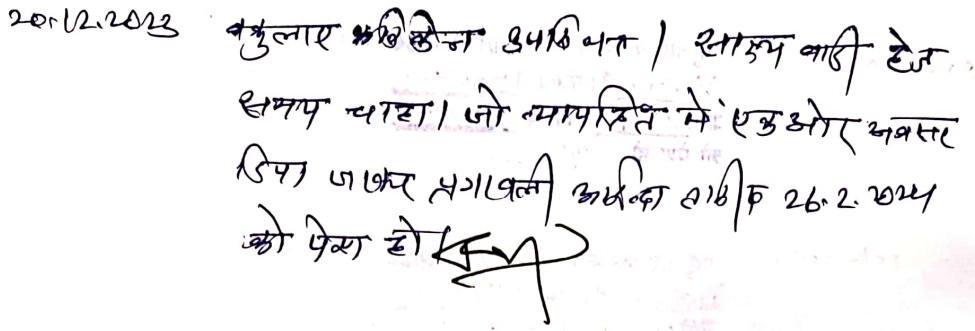 20.12.2023 वकुलाए फरीकेन उपस्थित । साक्ष्य वादी हेतु
समय चाहा। जो न्यायहित में एक ओर अवसर
दिया जाकर पत्रावली आईन्दा तारीख 26.2.2024
को पेश हो।